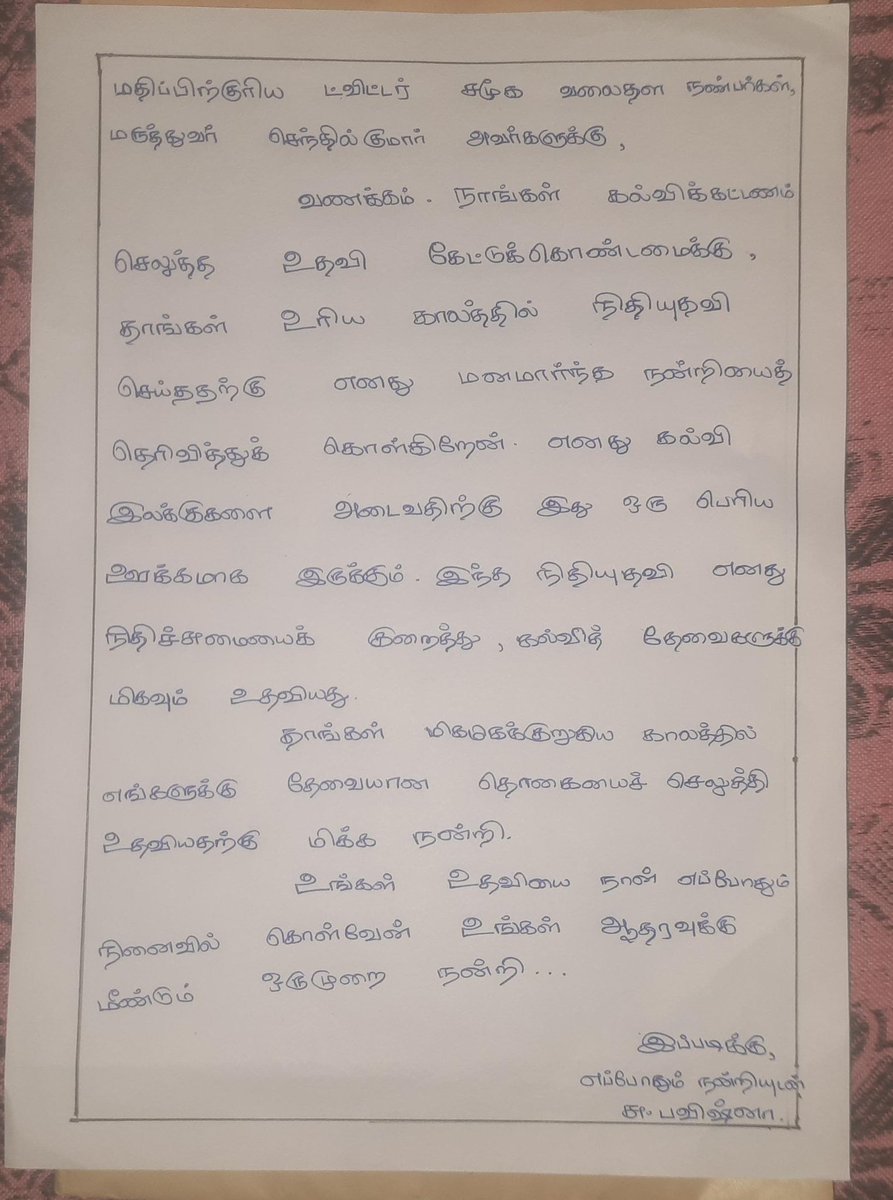 மதிப்பிற்குரிய ட்விட்டர் சமூக வலைதள நண்பர்கள்,
மருத்துவர் செந்தில்குமார் அவர்களுக்கு,
வணக்கம். நாங்கள் கல்விக்கட்டணம்
செலுத்த உதவி கேட்டுக்கொண்டமைக்கு,
தாங்கள் உரிய காலத்தில் நிதியுதவி
செய்ததற்கு எனது மனமார்ந்த நன்றியைத்
தெரிவித்துக் கொள்கிறேன். எனது கல்வி
இலக்குகளை அடைவதிற்கு இது ஒரு பெரிய
ஊக்கமாக இருக்கும். இந்த நிதியுதவி எனது
நிதிச்சுமையைக் குறைத்து, கல்வித் தேவைகளுக்கு
மிகவும் உதவியது.
தாங்கள் மிகமிகக்குறுகிய காலத்தில்
எங்களுக்கு தேவையான தொகையைச் செலுத்தி
உதவியதற்கு மிக்க நன்றி.
உங்கள் உதவியை நான் எப்போதும்
நினைவில் கொள்வேன் உங்கள் ஆதரவுக்கு
மீண்டும் ஒருமுறை நன்றி...
இப்படிக்கு,
எப்போதும் நன்றியுடன்
சு. பவிஷ்னா.